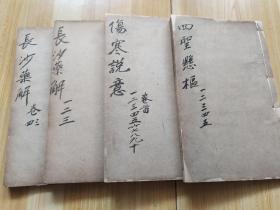 四聖懸樞
一二三四五
傷寒説意
卷首
一二三四五六七八九十
長沙藥解
一二三
長沙藥解
卷三四